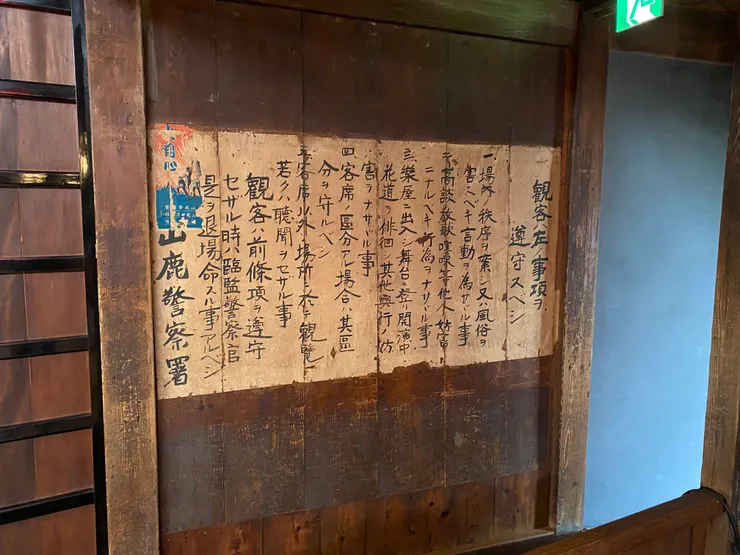 観客ハ左ノ事項ヲ
遵守スベシ
一、場内ノ秩序ヲ紊シ又ハ風俗ヲ
害スベキ言動ヲ為サヾル事
二、高談放歌喧噪等他人ノ妨害
ニナルベキ行為ヲナサヾル事
三、樂屋ニ出入シ舞台ニ登リ開演中
花道ヲ徘徊シ其他興行ノ妨
害ヲナサヾル事
四、客席ニ區分アル場合ハ其區
分ヲ守ルベシ
五、客席以外ノ場所ニ於テ観覧
若クハ聴聞ヲセザル事
観客ハ前條項ヲ遵守
セザル時ハ臨監警察官
是ヲ退場命スル事アルベシ
山鹿警察署